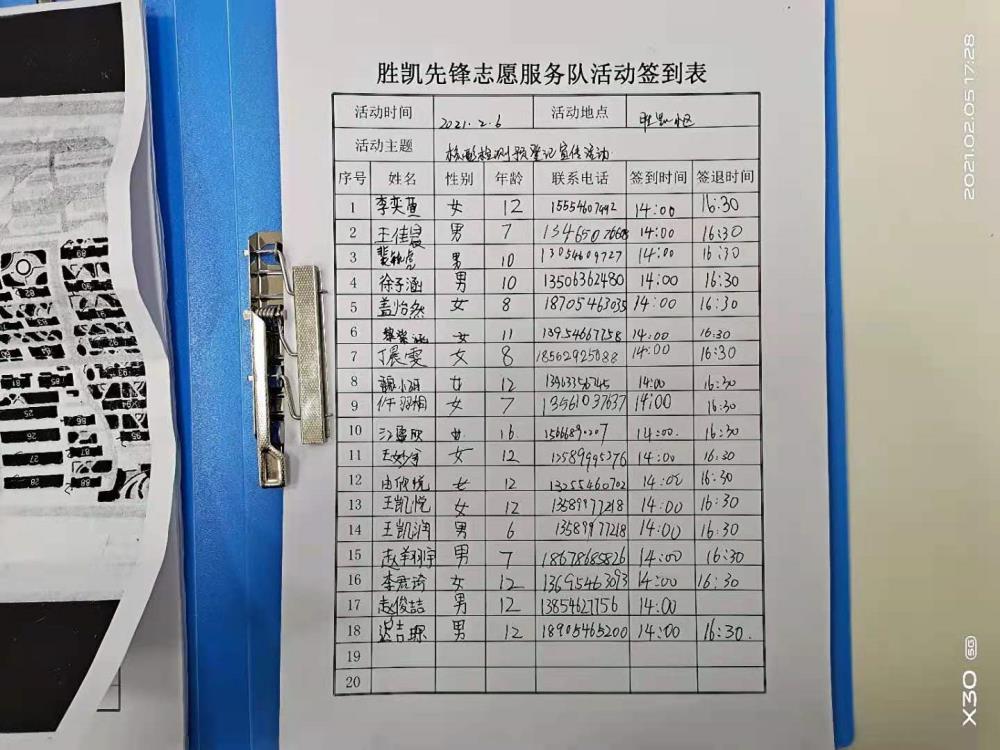 胜凯先锋志愿服务队活动签到表
活动时间 2021.2.6 活动地点 胜凯小区
活动主题 核酸检测预登记宣传活动
序号 姓名 性别 年龄 联系电话 签到时间 签退时间
1 李奕萱 女 12 15554607492 14:00 16:30
2 王佳晨 男 7 14:00 16:30
3 男 10 13054609727 14:00 16:30
4 徐子涵 男 10 13506362480 14:00 16:30
5 盖怡然 女 8 18705463035 14:00 16:30
6 女 11 13954667258 14:00 16:30
7 丁晨雯 女 8 14:00 16:30
8 女 12 13963356745 14:00 16:30
9 女 7 13561037637 14:00 16:30
10 江雪欣 女 16 14:00. 16:30
11 女 12 14:00 16:30
12 由欣悦 女 12 13255460702 14:00 16:30
13 王凯悦 女 12 13589977218 14:00 16:30
14 王凯润 男 6 13589977218 14:00 16:30
15 赵翔宇 男 7 18678685826 14:00 16:30
16 李君琦 女 12 13695463093 14:00 16:30
17 赵俊喆 男 12 13854627756 14:00
18 男 12 18905465200 14:00 16:30.
19
20
2021.02.05 17:28
X30 5G